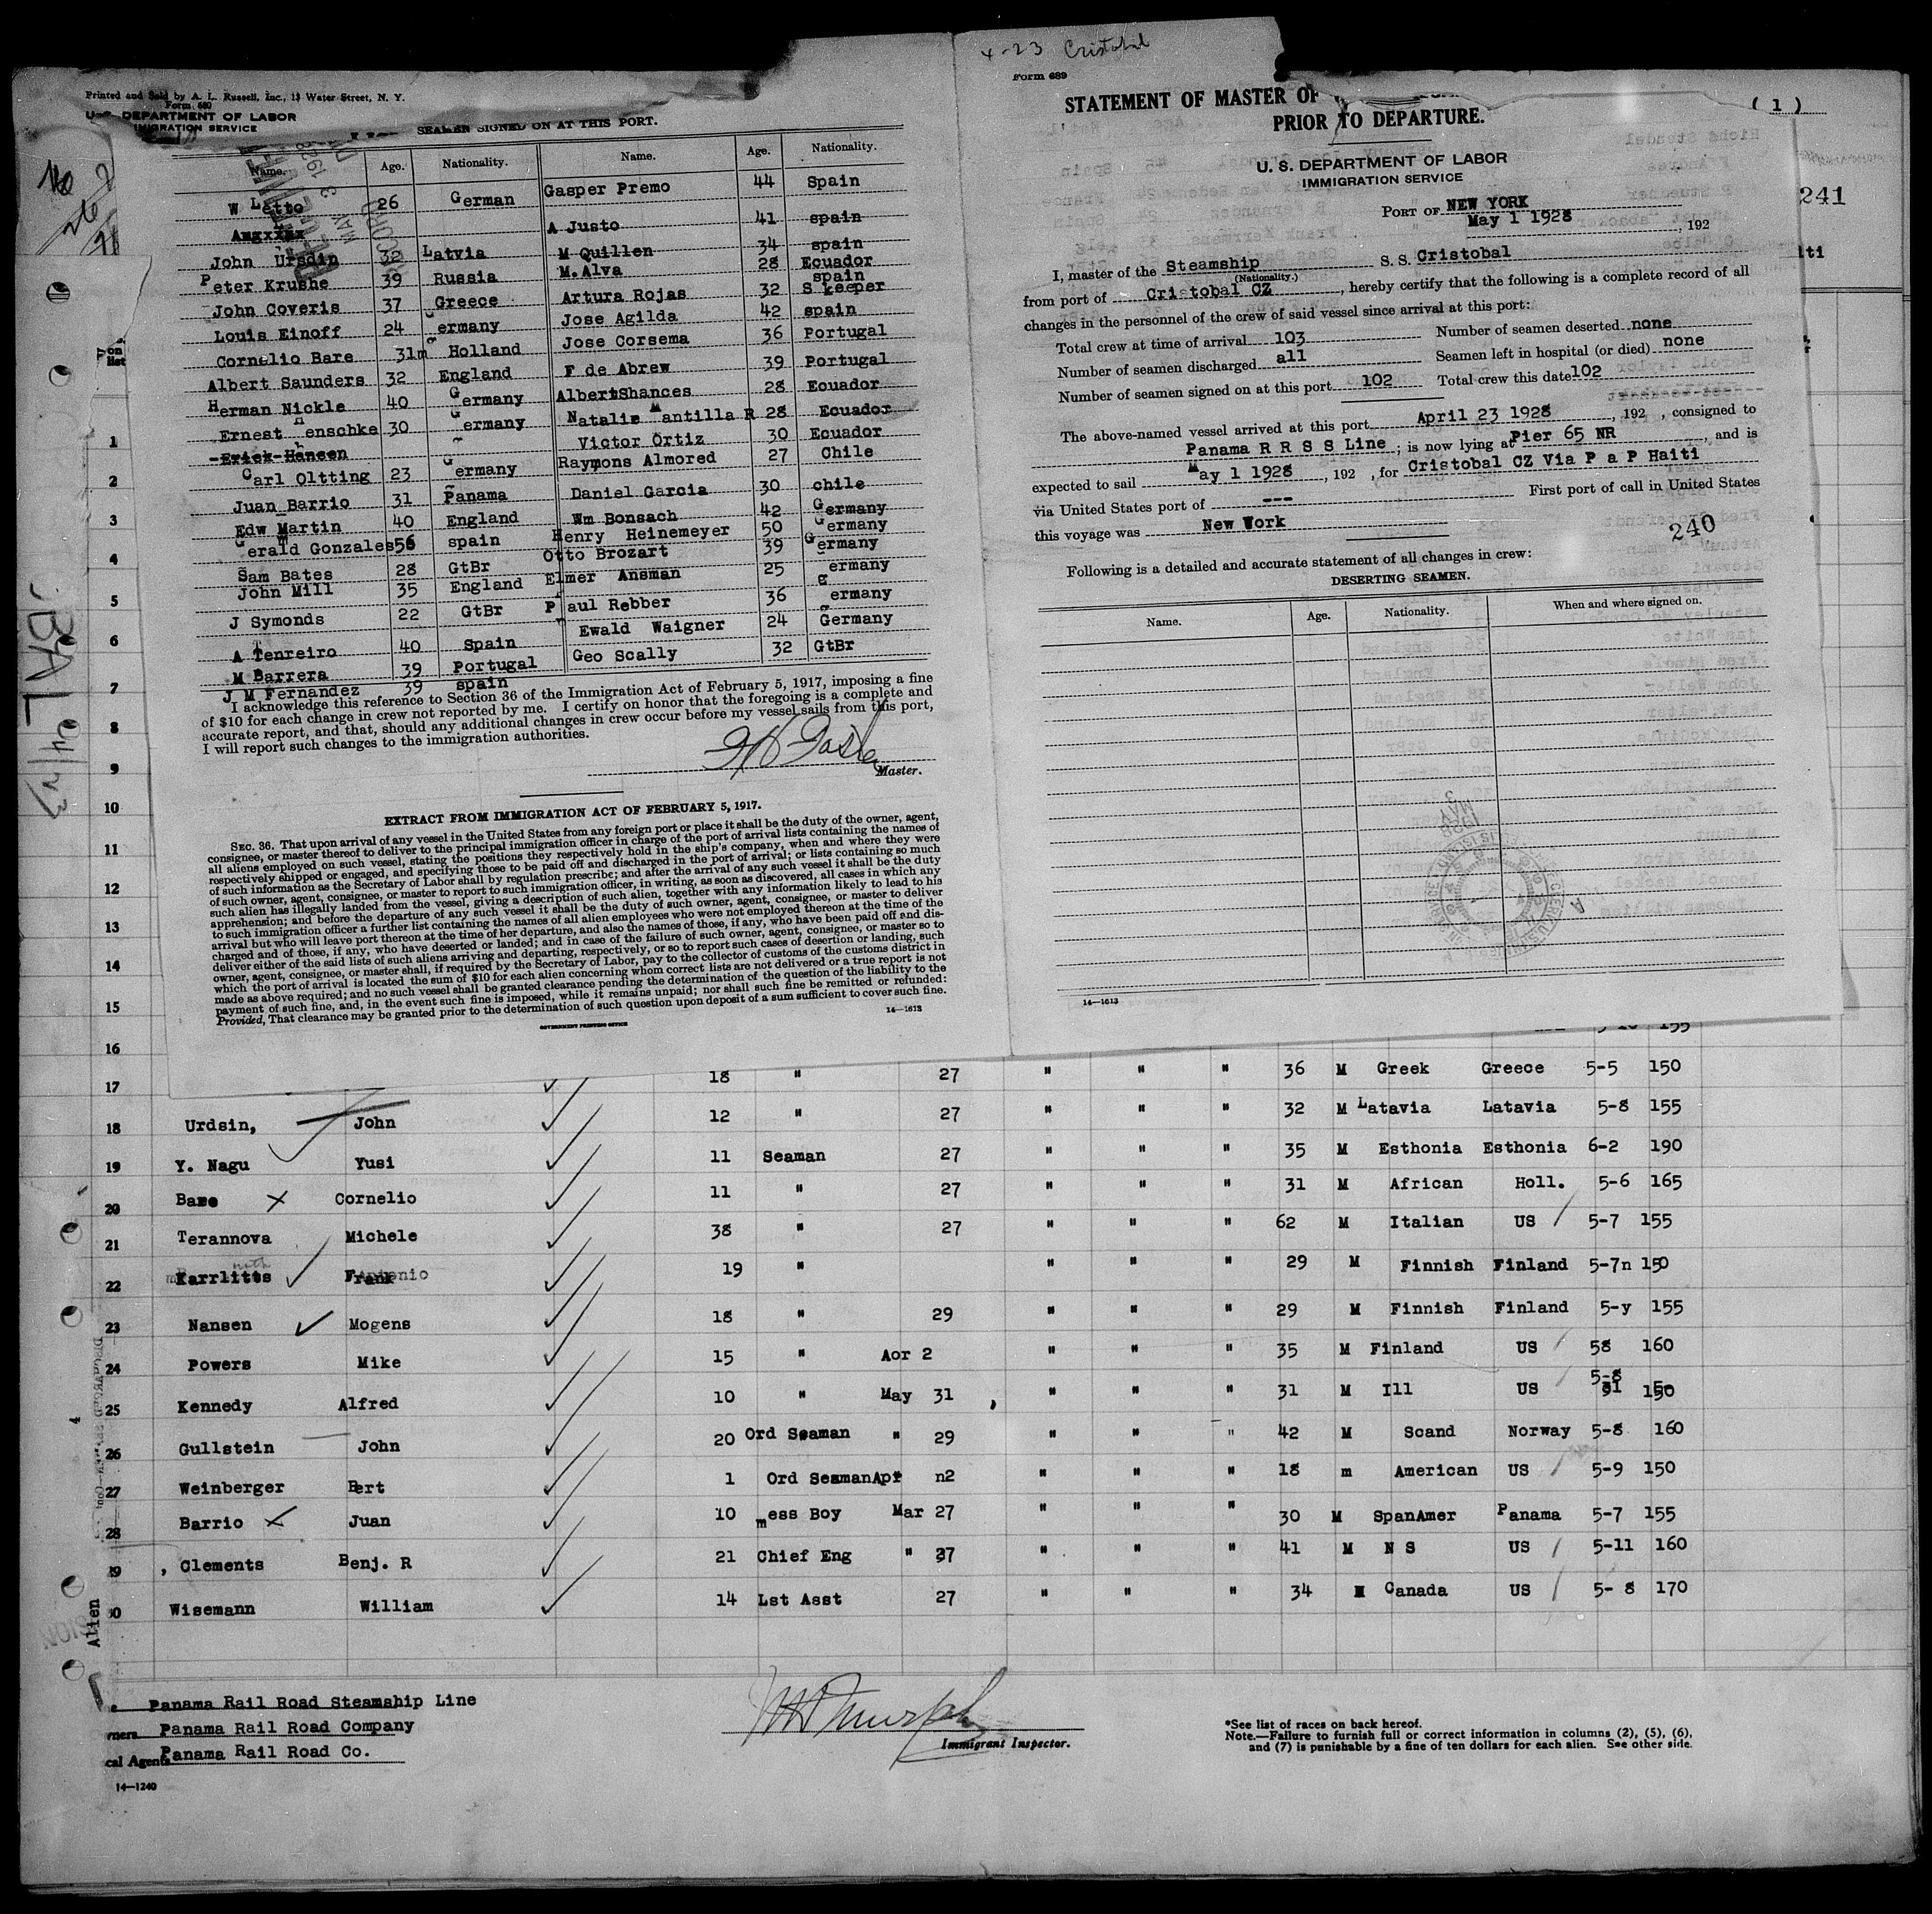 4-23 Cristobal
Printed and Sold by A. L. Russell, Inc., 13 Water Street, N. Y.
Form 680
U. S. DEPARTMENT OF LABOR
IMMIGRATION SERVICE
SEAMEN SIGNED ON AT THIS PORT.
Name. Age. Nationality. Name. Age. Nationality.
W Letto 26 German Gasper Premo 44 Spain
A Justo 41 spain
John Ursdin 32 Latvia M Quillen 34 spain
Peter Krushe 39 Russia M. Alva 28 Ecuador
spain
John Coveris 37 Greece Artura Rojas 32 S keeper
Louis Einoff 24 Germany Jose Agilda 42 spain
Cornelio Bare 31m Holland Jose Corsema 36 Portugal
Albert Saunders 32 England F de Abrew 39 Portugal
Herman Nickle 40 Germany Albert Shances 28 Ecuador
Ernest Henschke 30 Germany Natalie Mantilla R 28 Ecuador
Erick Hansen Victor Ortiz 30 Ecuador
Carl Oltting 23 Germany Raymons Almored 27 Chile
Juan Barrio 31 Panama Daniel Garcia 30 chile
Edw Martin 40 England Wm Bonsach 42 Germany
Gerald Gonzales 56 spain Henry Heinemeyer 50 Germany
Sam Bates 28 GtBr Otto Brozart 39 Germany
John Mill 35 England Elmer Ansman 25 Germany
J Symonds 22 GtBr Paul Rebber 36 Germany
A Tenreiro 40 Spain Ewald Waigner 24 Germany
M Barrera 39 Portugal Geo Scally 32 GtBr
J M Fernandez 39 spain
I acknowledge this reference to Section 36 of the Immigration Act of February 5, 1917, imposing a fine
of $10 for each change in crew not reported by me. I certify on honor that the foregoing is a complete and
accurate report, and that, should any additional changes in crew occur before my vessel sails from this port,
I will report such changes to the immigration authorities.
Master.
EXTRACT FROM IMMIGRATION ACT OF FEBRUARY 5, 1917.
SEC. 36. That upon arrival of any vessel in the United States from any foreign port or place it shall be the duty of the owner, agent,
consignee, or master thereof to deliver to the principal immigration officer in charge of the port of arrival lists containing the names of
all aliens employed on such vessel, stating the positions they respectively hold in the ship's company, when and where they were
respectively shipped or engaged, and specifying those to be paid off and discharged in the port of arrival; or lists containing so much
of such information as the Secretary of Labor shall by regulation prescribe; and after the arrival of any such vessel it shall be the duty
of such owner, agent, consignee, or master to report to such immigration officer, in writing, as soon as discovered, all cases in which any
such alien has illegally landed from the vessel, giving a description of such alien, together with any information likely to lead to his
apprehension; and before the departure of any such vessel it shall be the duty of such owner, agent, consignee, or master to deliver
to such immigration officer a further list containing the names of all alien employees who were not employed thereon at the time of the
arrival but who will leave port thereon at the time of her departure, and also the names of those, if any, who have been paid off and dis-
charged and of those, if any, who have deserted or landed; and in case of the failure of such owner, agent, consignee, or master so to
deliver either of the said lists of such aliens arriving and departing, respectively, or so to report such cases of desertion or landing, such
owner, agent, consignee, or master shall, if required by the Secretary of Labor, pay to the collector of customs of the customs district in
which the port of arrival is located the sum of $10 for each alien concerning whom correct lists are not delivered or a true report is not
made as above required; and no such vessel shall be granted clearance pending the determination of the question of the liability to the
payment of such fine, and, in the event such fine is imposed, while it remains unpaid; nor shall such fine be remitted or refunded:
Provided, That clearance may be granted prior to the determination of such question upon deposit of a sum sufficient to cover such fine.
14—1613
GOVERNMENT PRINTING OFFICE
Form 689
STATEMENT OF MASTER OF
PRIOR TO DEPARTURE.
( 1 )
U. S. DEPARTMENT OF LABOR
IMMIGRATION SERVICE
241
PORT OF NEW YORK
May 1 1928, 192
I, master of the Steamship S. S. Cristobal
(Nationality.)
from port of Cristobal CZ, hereby certify that the following is a complete record of all
changes in the personnel of the crew of said vessel since arrival at this port:
Total crew at time of arrival 103 Number of seamen deserted none
Number of seamen discharged all Seamen left in hospital (or died) none
Number of seamen signed on at this port 102 Total crew this date 102
The above-named vessel arrived at this port April 23 1928, 192 , consigned to
Panama R R S S Line; is now lying at Pier 65 NR, and is
expected to sail May 1 1928, 192 , for Cristobal CZ Via P a P Haiti
via United States port of --- First port of call in United States
this voyage was New Work
240
Following is a detailed and accurate statement of all changes in crew:
DESERTING SEAMEN.
Name. Age. Nationality. When and where signed on.
14—1613
BAL 4/23
1
2
3
4
5
6
7
8
9
10
11
12
13
14
15
16 155
17 18 " 27 " " " 36 M Greek Greece 5-5 150
18 Urdsin, John 12 " 27 " " " 32 M Latavia Latavia 5-8 155
19 Y. Nagu Yusi 11 Seaman 27 " " " 35 M Esthonia Esthonia 6-2 190
20 Bare Cornelio 11 " 27 " " " 31 M African Holl. 5-6 165
21 Terannova Michele 38 " 27 " " " 62 M Italian US 5-7 155
22 Karrlitts Frank 19 " " " " 29 M Finnish Finland 5-7n 150
23 Nansen Mogens 18 " 29 " " " 29 M Finnish Finland 5-y 155
24 Powers Mike 15 " Aor 2 " " " 35 M Finland US 58 160
25 Kennedy Alfred 10 " May 31 " " " 31 M Ill US 5-8 150
26 Gullstein John 20 Ord Seaman " 29 " " " 42 M Scand Norway 5-8 160
27 Weinberger Bert 1 Ord Seaman Apr n2 " " " 18 m American US 5-9 150
28 Barrio Juan 10 mess Boy Mar 27 " " " 30 M SpanAmer Panama 5-7 155
29 Clements Benj. R 21 Chief Eng " 27 " " " 41 M N S US 5-11 160
30 Wisemann William 14 Lst Asst 27 " " " 34 M Canada US 5- 8 170
Alien
Panama Rail Road Steamship Line
Panama Rail Road Company
cal Agents Panama Rail Road Co.
14—1240
Immigrant Inspector.
*See list of races on back hereof.
Note.—Failure to furnish full or correct information in columns (2), (5), (6),
and (7) is punishable by a fine of ten dollars for each alien. See other side.